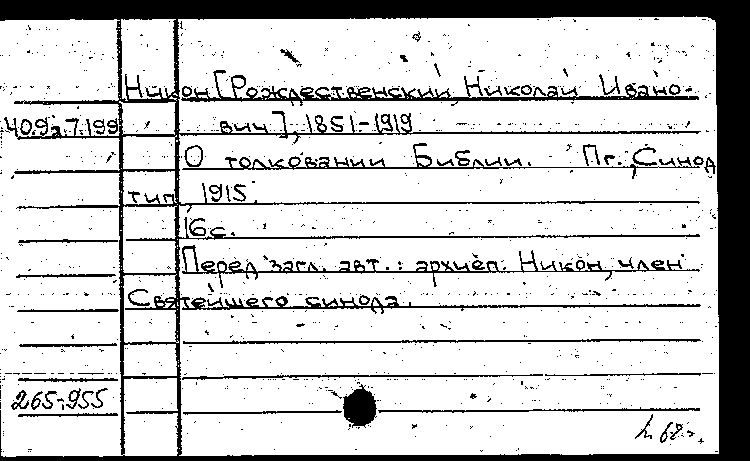 Никон [Рождественский, Николай Ивано-
40.9а.7.199 вич], 1851-1919
О толковании Библии. Пг., Синод
тип., 1915.
16с.
Перед загл. авт.: архиеп. Никон, член
Святейшего синода.
265-955